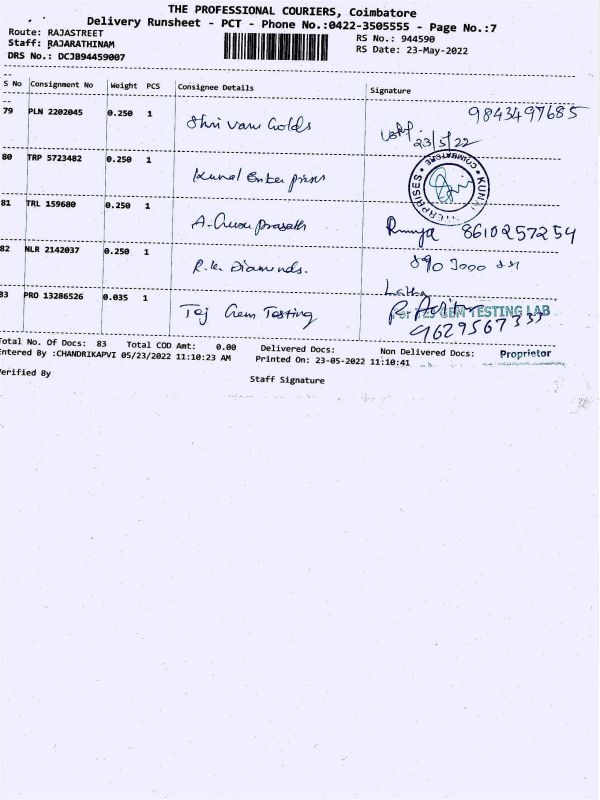 THE PROFESSIONAL COURIERS, Coimbatore
Delivery Runsheet - PCT - Phone No.:0422-3505555 - Page No.:7
Route: RAJASTREET
Staff: RAJARATHINAM
DRS No.: DCJB94459007
RS No.: 944590
RS Date: 23-May-2022
S No Consignment No Weight PCS Consignee Details Signature
79 PLN 2202045 0.250 1 9843497685
23/5/22
80 TRP 5723482 0.250 1 Kunal Enterprises
COIMBATORE
81 TRL 159680 0.250 1 A. Guru prasath Ramya 8610257254
82 NLR 2142037 0.250 1 R.K. Diamonds.
Latha
83 PRO 13286526 0.035 1 Taj Gem Testing
For TAJ GEM TESTING LAB
9629567333
Total No. Of Docs: 83 Total COD Amt: 0.00 Delivered Docs: Non Delivered Docs:
Proprietor
Entered By :CHANDRIKAPVI 05/23/2022 11:10:23 AM Printed On: 23-05-2022 11:10:41
Verified By
Staff Signature